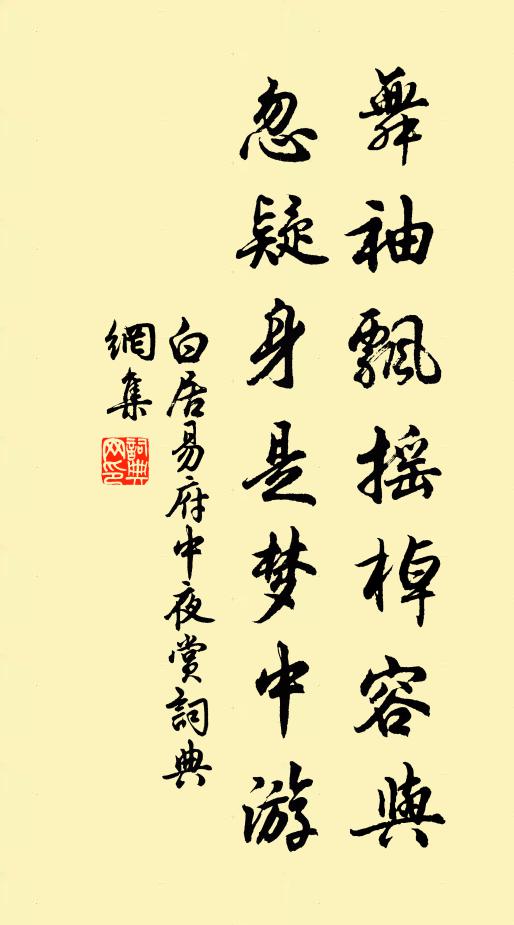 舞袖飄摇棹容與
忽疑身是梦中游
白居易府中夜赏詞典
網集
詞典
网印